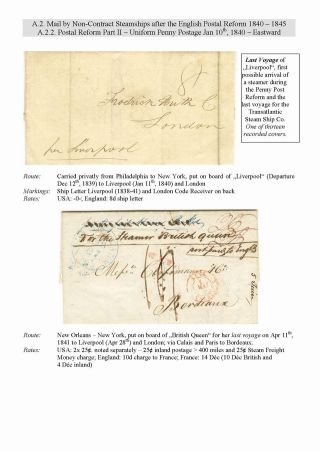 A.2. Mail by Non-Contract Steamships after the English Postal Reform 1840 – 1845
A.2.2. Postal Reform Part II – Uniform Penny Postage Jan 10th, 1840 – Eastward
Last Voyage of
„Liverpool“, first
possible arrival of
a steamer during
the Penny Post
Reform and the
last voyage for the
Transatlantic
Steam Ship Co.
One of thirteen
recorded covers.
8
Frederick Huth C
London
per Liverpool
Route: Carried privatly from Philadelphia to New York, put on board of „Liverpool“ (Departure
Dec 12th, 1839) to Liverpool (Jan 11th, 1840) and London
Markings: Ship Letter Liverpool (1838-41) and London Code Receiver on back
Rates: USA: -0-, England: 8d ship letter
For the Steamer British queen
Bordeaux
Route: New Orleans – New York, put on board of „British Queen“ for her last voyage on Apr 11th,
1841 to Liverpool (Apr 28th) and London; via Calais and Paris to Bordeaux.
Rates: USA: 2x 25¢. noted separately – 25¢ inland postage > 400 miles and 25¢ Steam Freight
Money charge; England: 10d charge to France; France: 14 Déc (10 Déc British and
4 Déc inland)